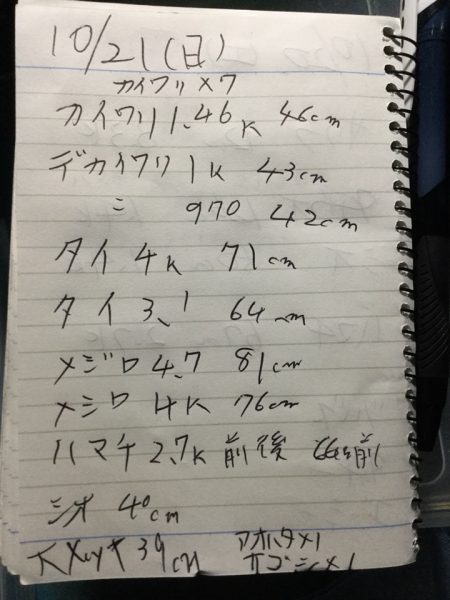 10/21(日)
カイワリ×7
カイワリ 1.46k 46cm
デカイワリ 1k 43cm
〃 970 42cm
タイ 4k 71cm
タイ 3.1 64cm
メジロ 4.7 81cm
メジロ 4k 76cm
ハマチ 2.7k 前後 66前
シオ 40cm
39cm アオハタ×1
×1